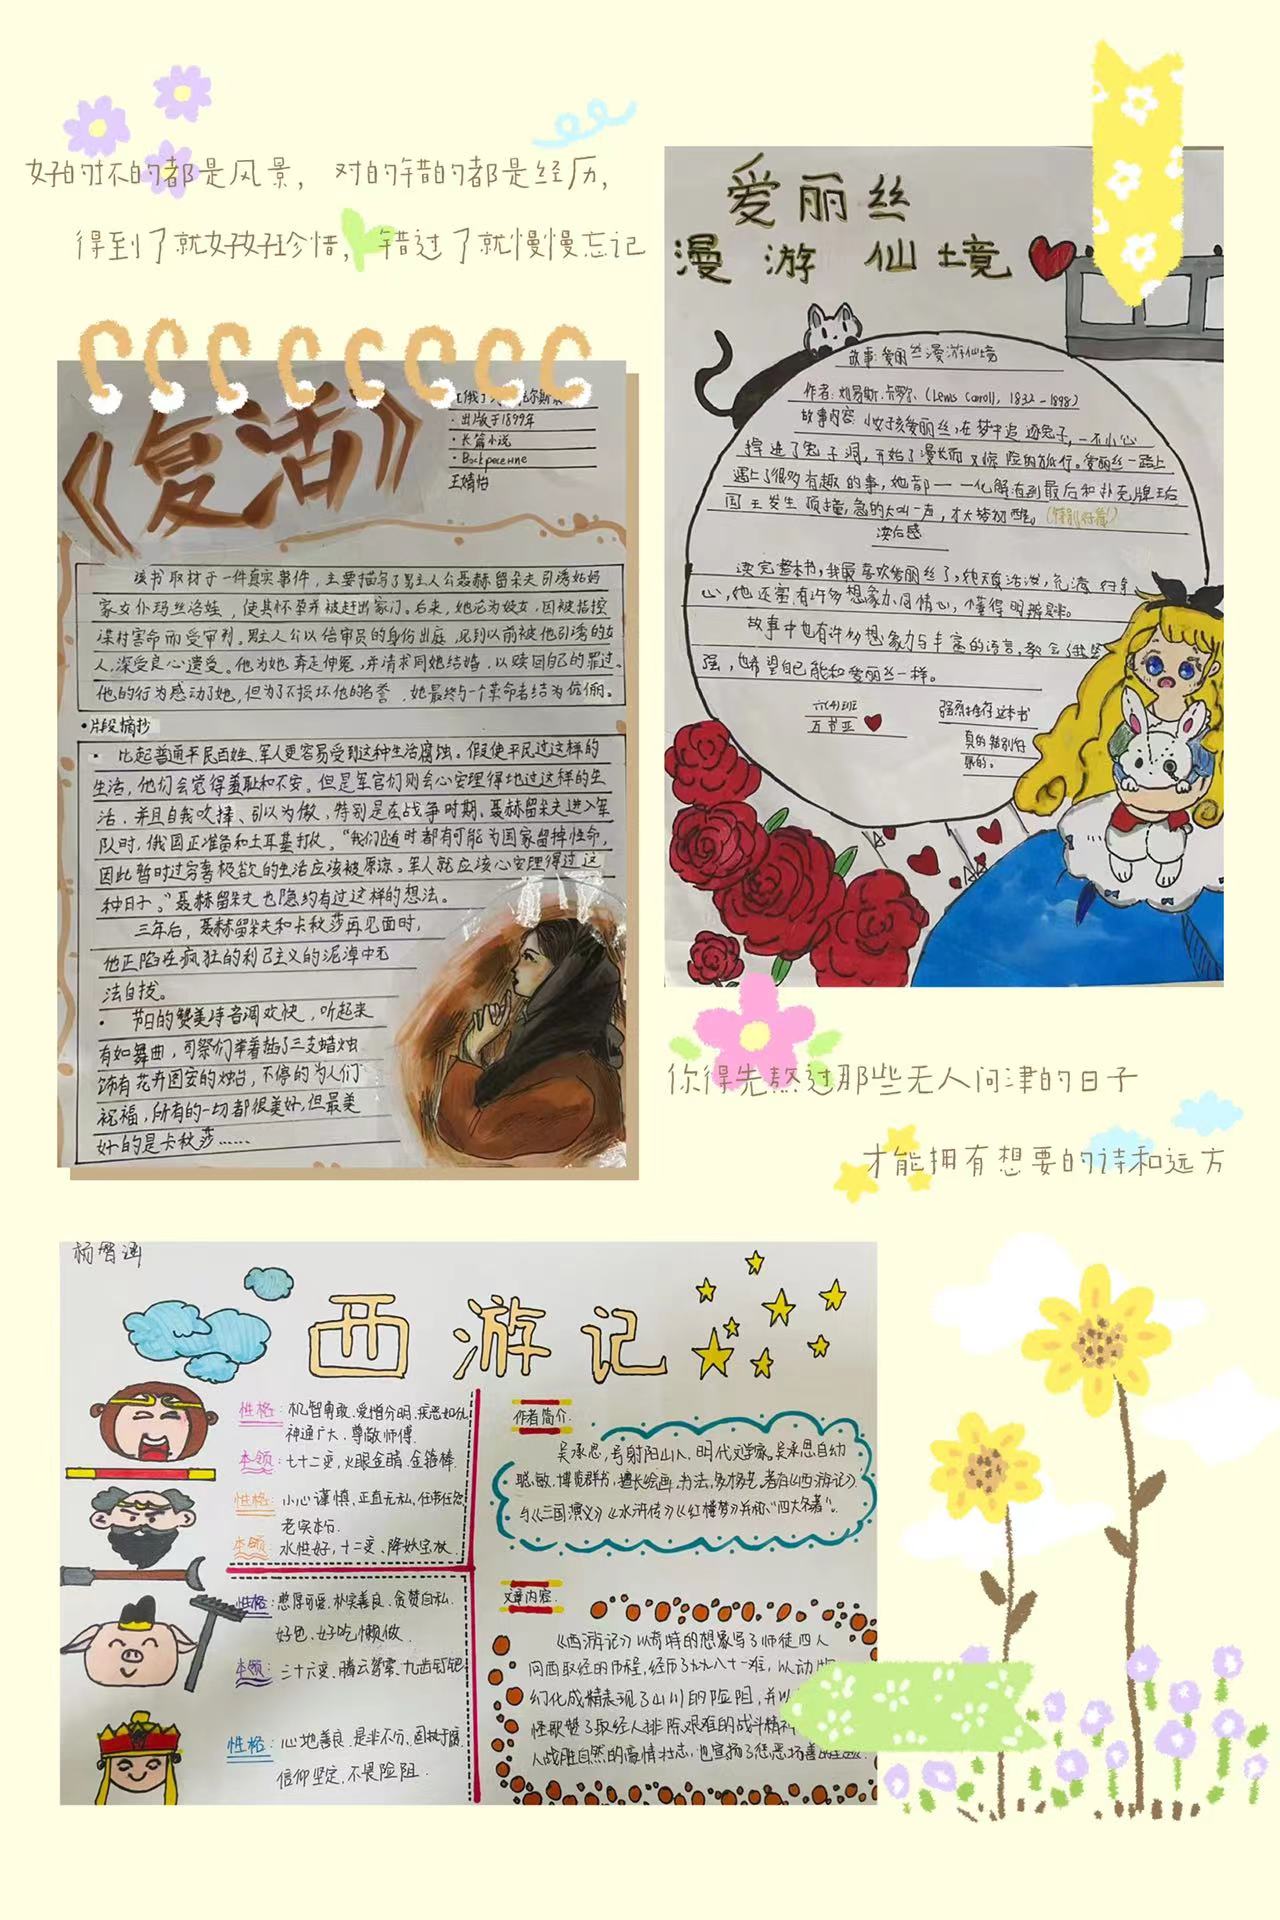 好的坏的都是风景，对的错的都是经历，
得到了就好好珍惜，错过了就慢慢忘记
《复活》
·出版于1899年
·长篇小说
王婧怡
该书取材于一件真实事件，主要描写了男主人公聂赫留朵夫引诱姑妈
家女仆玛丝洛娃，使其怀孕并被赶出家门。后来，她沦为妓女，因被指控
谋财害命而受审判。男主人公以陪审员的身份出庭，见到以前被他引诱的女
人，深受良心谴责。他为她奔走伸冤，并请求同她结婚，以赎回自己的罪过。
他的行为感动了她，但为了不损坏他的名誉，她最终与一个革命者结为伉俪。
·片段摘抄
·比起普通平民百姓，军人更容易受到这种生活腐蚀。假使平民过这样的
生活，他们会觉得羞耻和不安。但是军官们则会心安理得地过这样的生
活，并且自我吹捧、引以为傲，特别是在战争时期。聂赫留朵夫进入军
队时，俄国正准备和土耳其打仗。“我们随时都有可能为国家留掉性命，
因此暂时过穷奢极欲的生活应该被原谅。军人就应该心安理得过这
种日子。”聂赫留朵夫也隐约有过这样的想法。
三年后，聂赫留朵夫和卡秋莎再见面时，
他正陷在疯狂的利己主义的泥淖中无
法自拔。
·节日的赞美诗音调欢快，听起来
有如舞曲，司祭们举着插了三支蜡烛
饰有花卉图案的烛台，不停的为人们
祝福，所有的一切都很美好，但最美
好的是卡秋莎……
爱丽丝
漫游仙境
故事：爱丽丝漫游仙境
作者：刘易斯·卡罗尔（Lewis Carroll，1832-1898）
故事内容：小女孩爱丽丝，在梦中追逐兔子，一不小心
掉进了兔子洞，开始了漫长而又惊险的旅行。爱丽丝一路上
遇上了很多有趣的事，她都一一化解，直到最后和扑克牌王后
国王发生顶撞，急的大叫一声，才大梦初醒。
读后感
读完整本书，我最喜欢爱丽丝了，她天真活泼，充满好奇
心，她还富有许多想象力、同情心，懂得明辨是非。
故事中也有许多想象力与丰富的语言，教会了我坚
强，也希望自己能和爱丽丝一样。
六(4)班
万书亚
强烈推荐这本书
真的特别好
你得先熬过那些无人问津的日子
才能拥有想要的诗和远方
杨智涵
西游记
性格：机智勇敢、爱憎分明、疾恶如仇
神通广大、尊敬师傅
本领：七十二变，火眼金睛、金箍棒
性格：小心谨慎、正直无私、任劳任怨
老实本分.
本领：水性好，十二变、降妖宝杖
性格：憨厚可爱、朴实善良、贪婪自私
好色、好吃懒做
本领：三十六变、腾云驾雾、九齿钉耙
性格：心地善良、是非不分、固执于腐
信仰坚定、不畏险阻.
作者简介
吴承恩，号射阳山人、明代文学家，吴承恩自幼
聪敏、博览群书，擅长绘画、书法，多才多艺，著有《西游记》
与《三国演义》《水浒传》《红楼梦》并称“四大名著”。
文章内容
《西游记》以奇特的想象写了师徒四人
问西取经的历程，经历了九九八十一难，以动物
幻化成精表现了山川的险阻，并以
怪歌赞了取经人排除艰难的战斗精神
人战胜自然的高情壮志，也宣扬了惩恶扬善